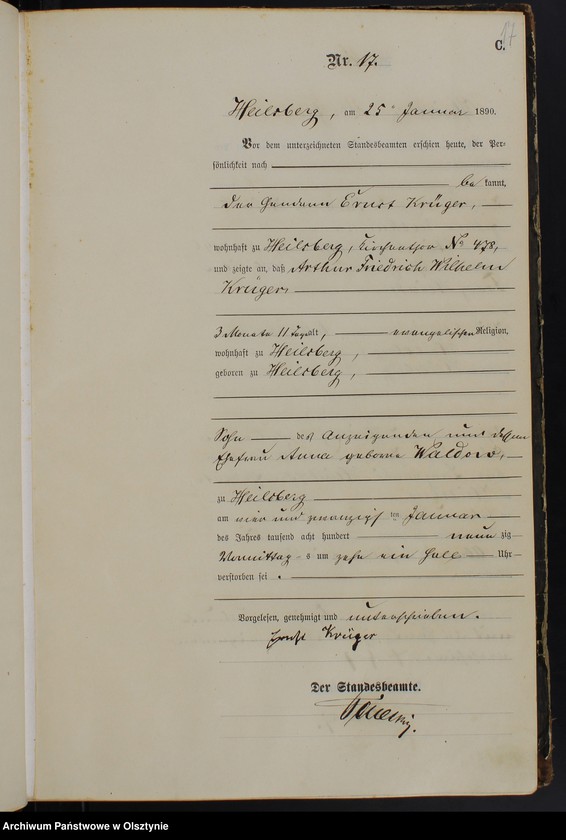 17
C.
Nr. 17.
Heilsberg, am 25 Januar 1890.
Vor dem unterzeichneten Standesbeamten erschien heute, der Per-
sönlichkeit nach
be kannt,
der Gendarm Ernst Krüger,
wohnhaft zu Heilsberg, No 478,
und zeigte an, daß Arthur Friedrich Wilhelm
Krüger
3 Monate 11 Tage alt, evangelischer Religion,
wohnhaft zu Heilsberg,
geboren zu Heilsberg,
Sohn des Anzeigenden und dessen
Ehefrau Anna geborene
zu Heilsberg
am vier und zwanzigsten Januar
des Jahres tausend acht hundert neun zig
Vormittag s um zehn ein halb Uhr
verstorben sei.
Vorgelesen, genehmigt und unterschrieben.
Ernst Krüger
Der Standesbeamte.
Archiwum Państwowe w Olsztynie